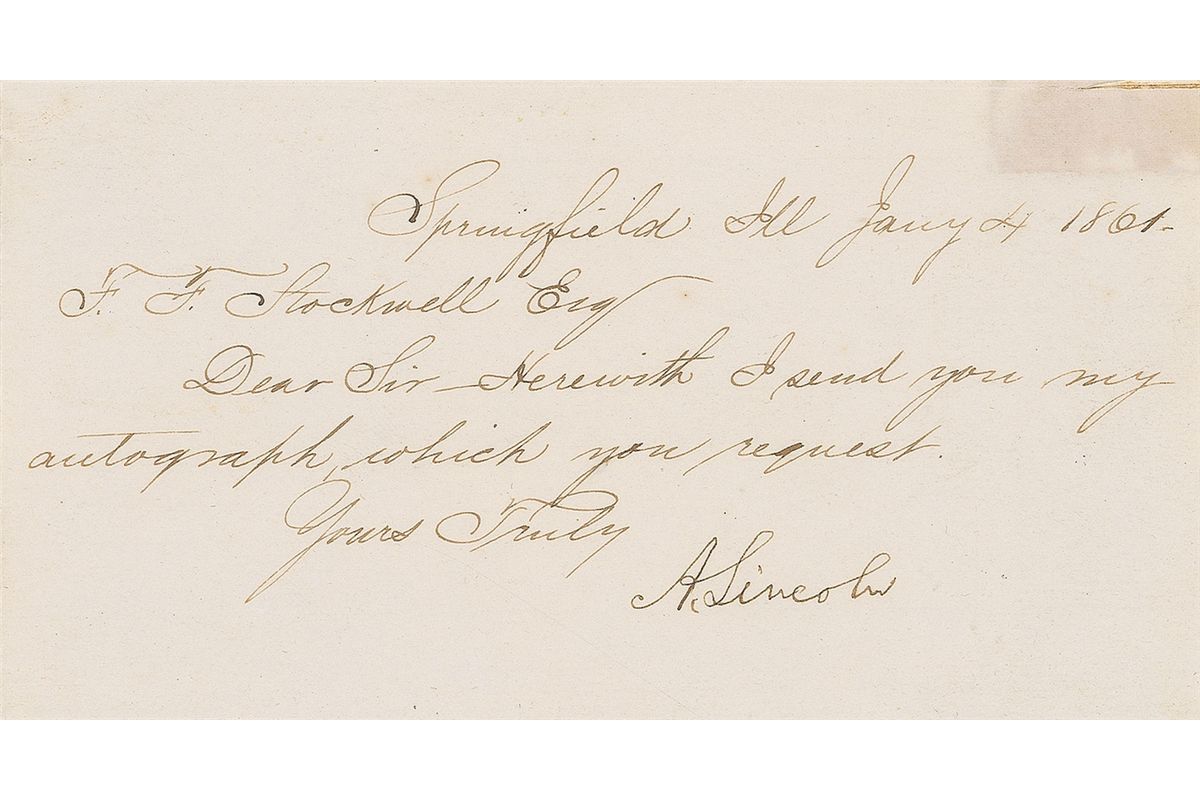 Springfield Ill Jany 4 1861-
F. F. Stockwell Esq
Dear Sir - Herewith I send you my
autograph, which you request.
Yours Truly
A. Lincoln